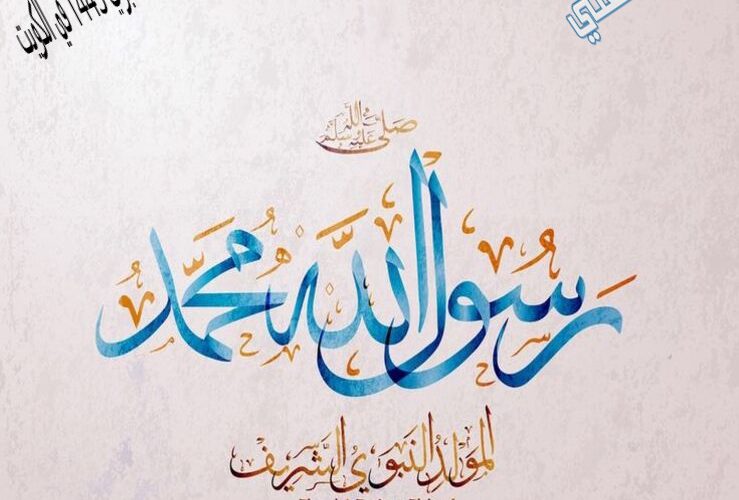 1445 في الكويت
صلى الله عليه وسلم
رسول الله محمد
المولد النبوي الشريف